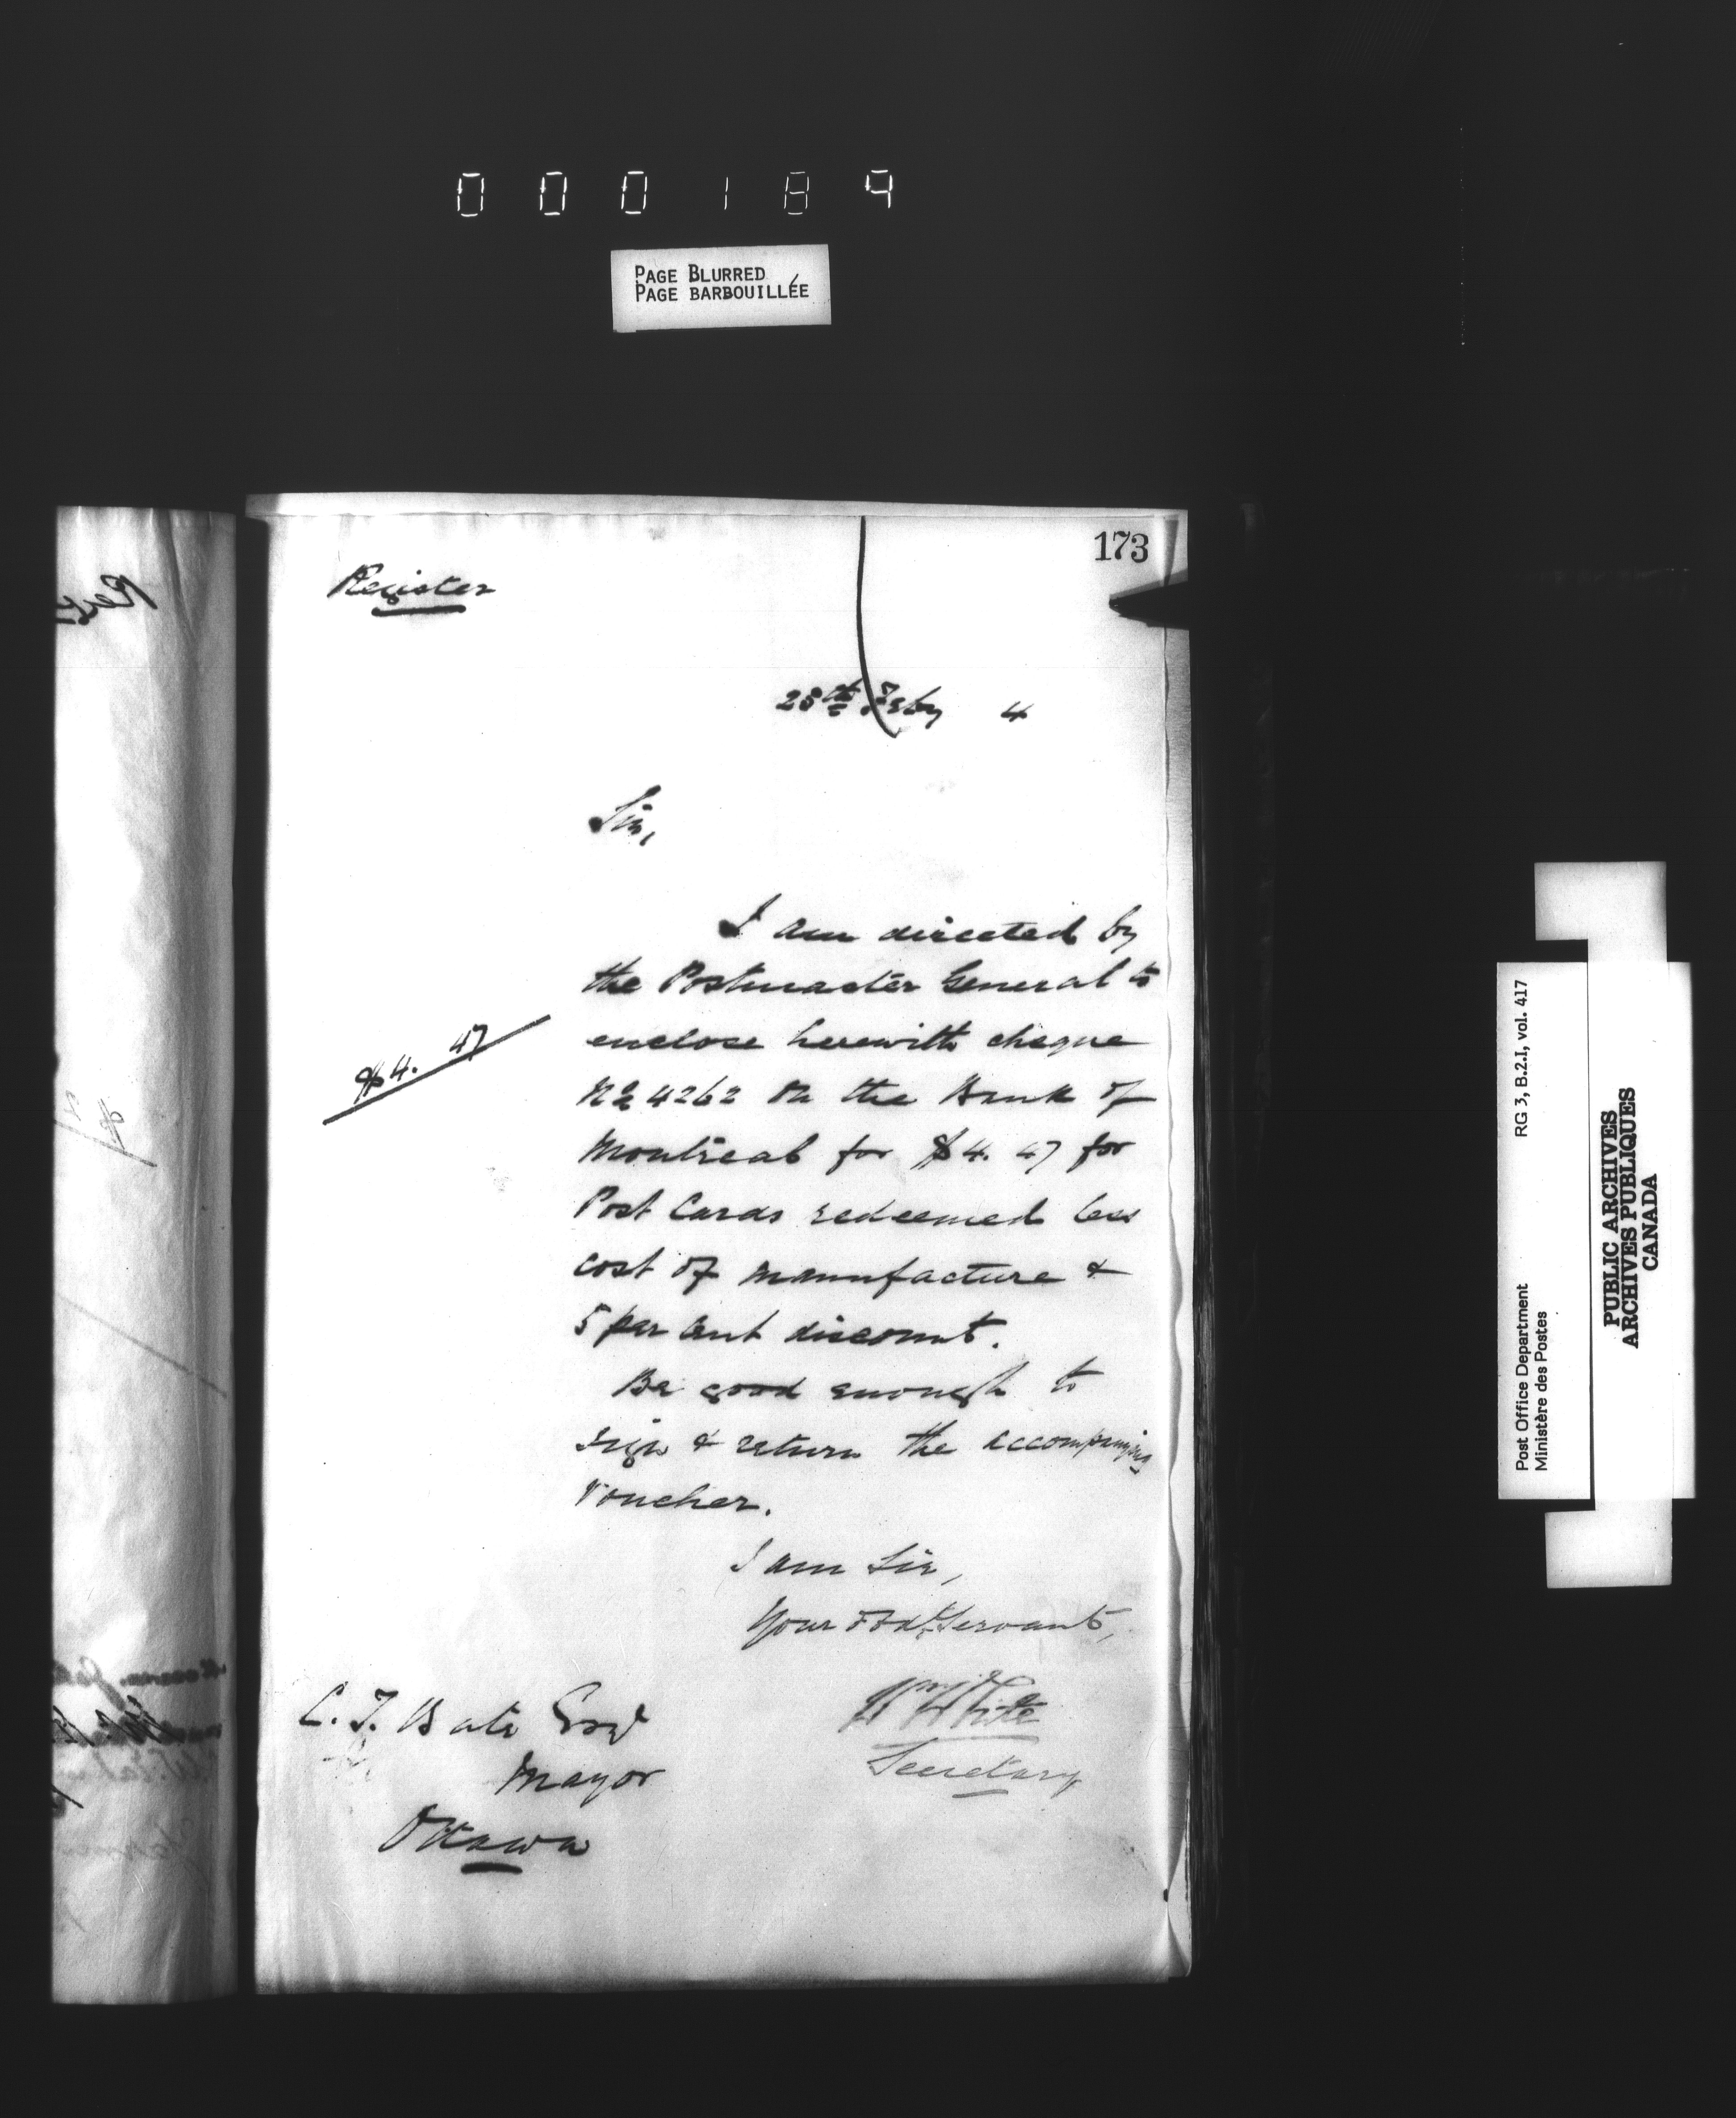 000184
PAGE BLURRED
PAGE BARBOUILLÉE
173
Register
28th Feby 4
Sir,
I am directed by
the Postmaster General to
enclose herewith cheque
$4.47
No 4262 on the Bank of
Montreal for $4.47 for
Post Cards redeemed less
cost of manufacture &
5 per cent discount.
Be good enough to
sign & return the accompanying
voucher.
I am Sir,
Your Obdt Servant,
Wm White
Secretary
C. T. Bate Esqr
Mayor
Ottawa
Post Office Department
Ministère des Postes
RG 3, B.2.I, vol. 417
PUBLIC ARCHIVES
ARCHIVES PUBLIQUES
CANADA